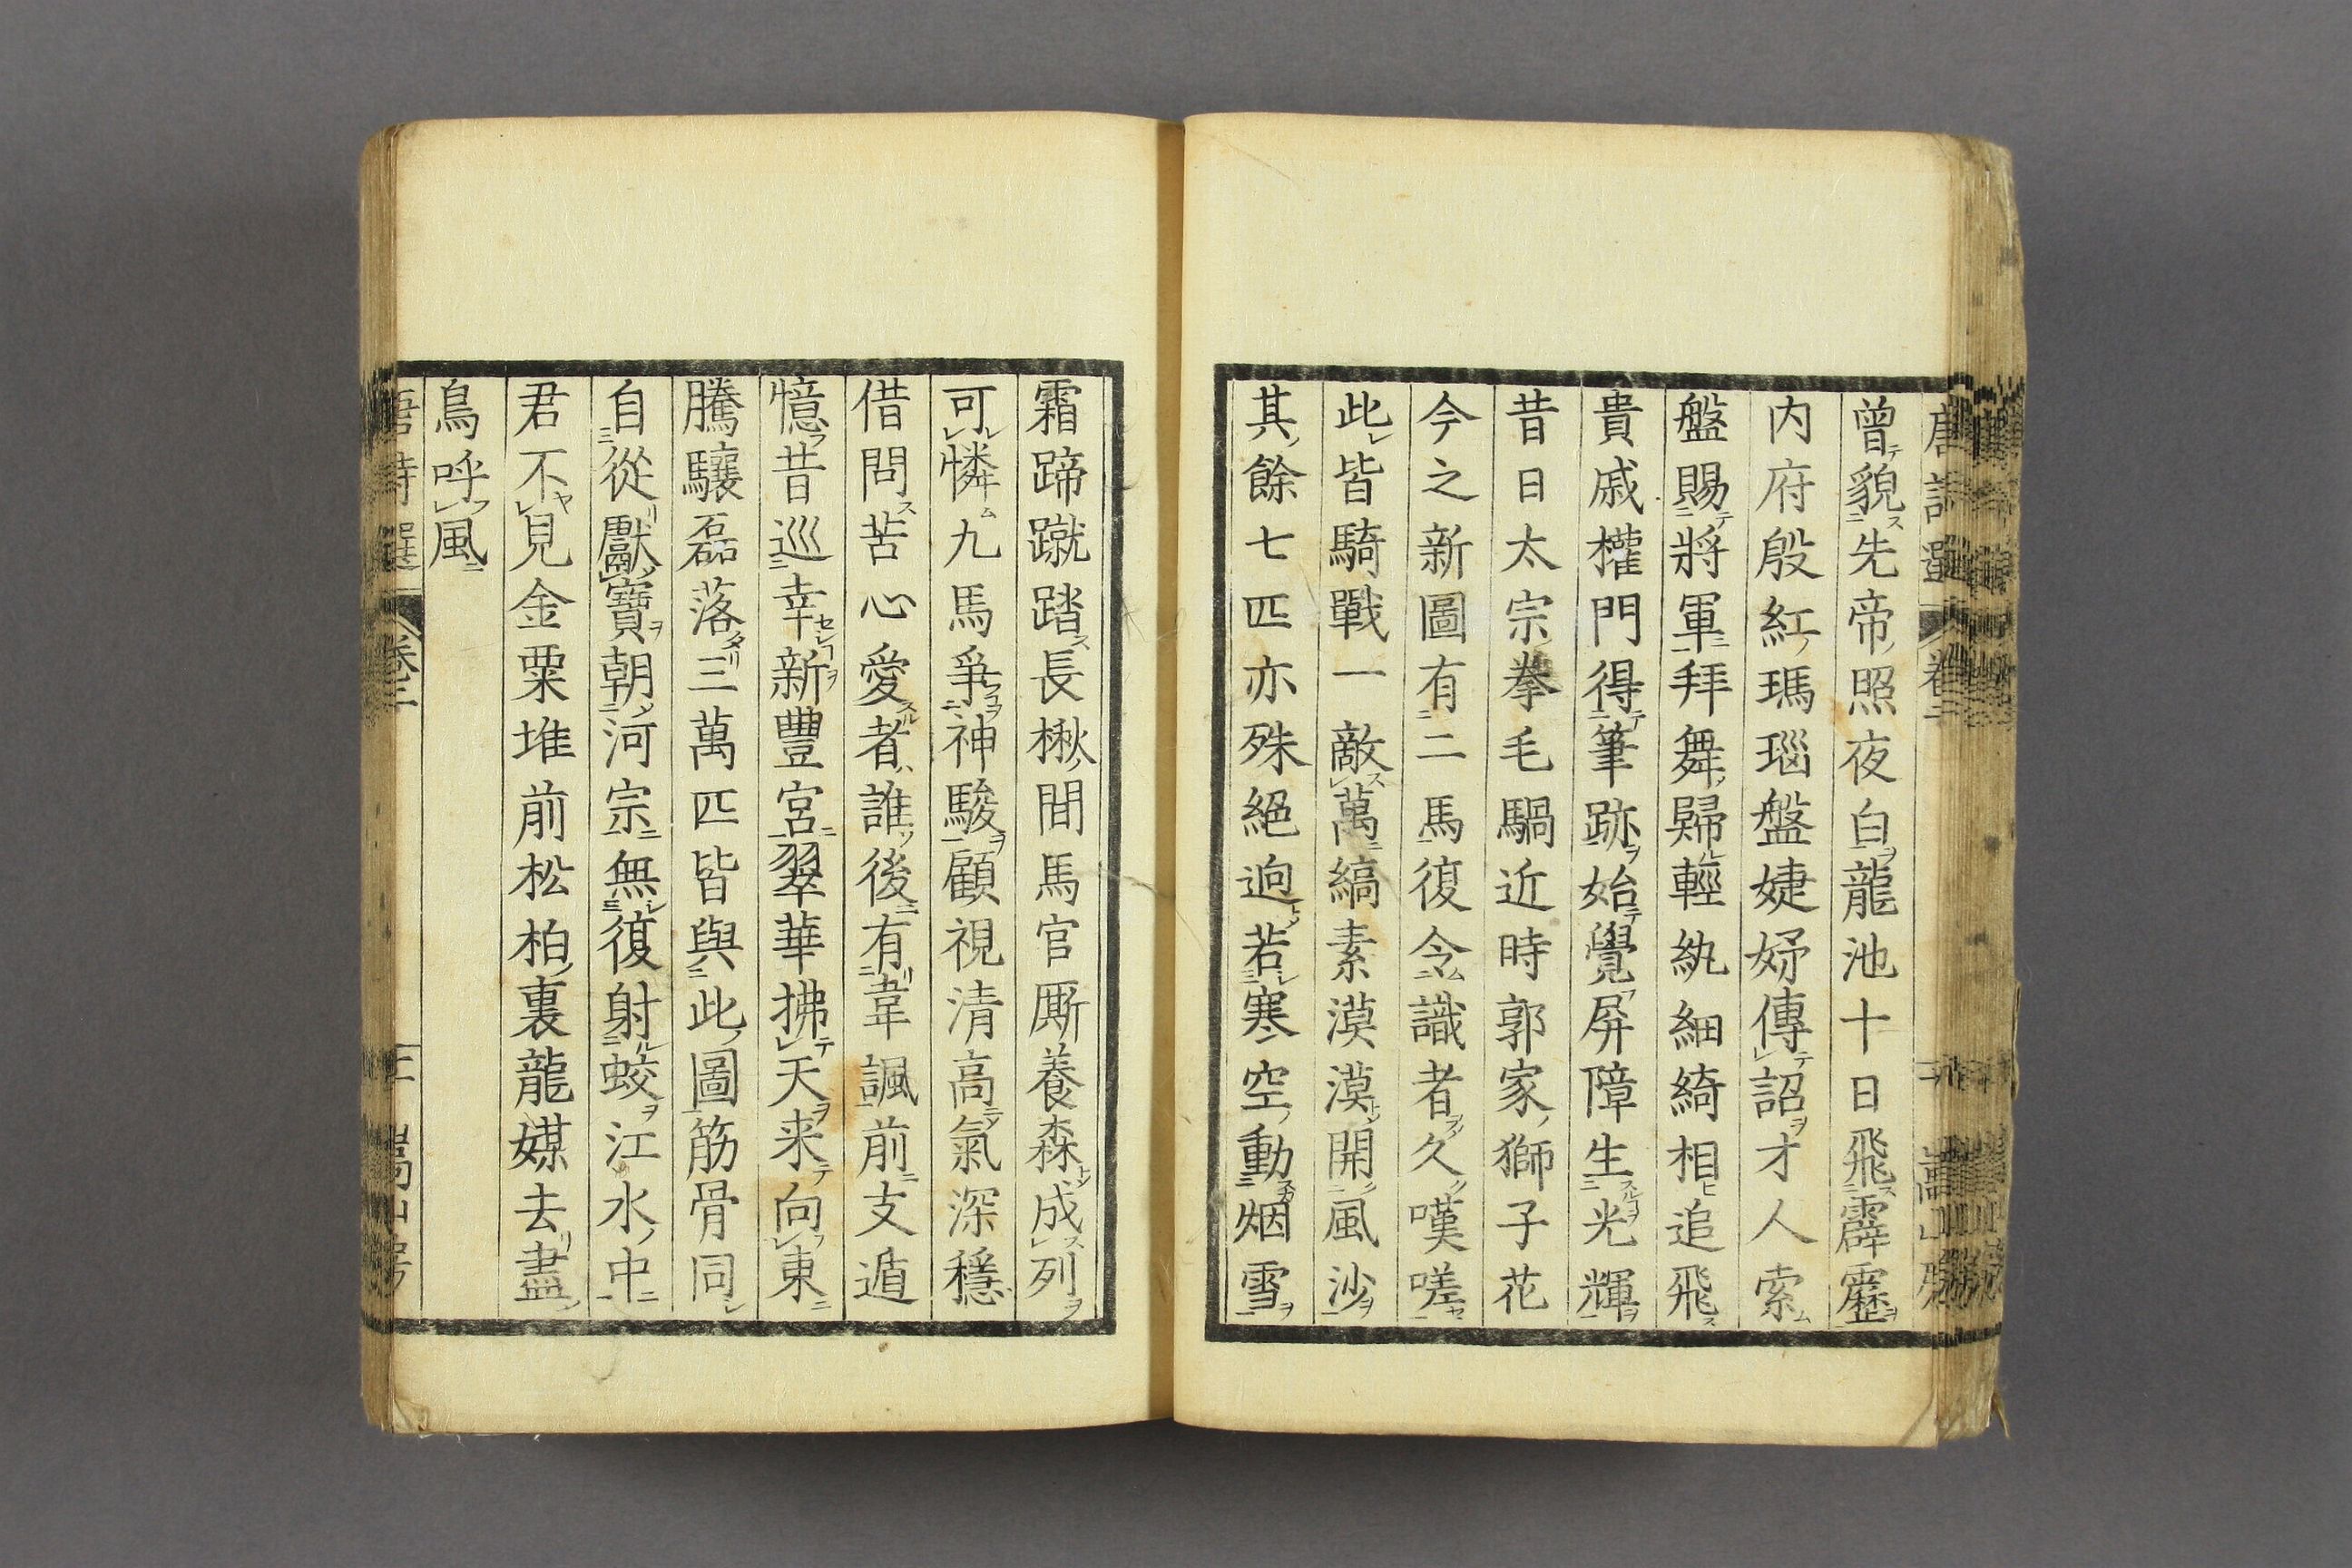 曾貌先帝照夜白龍池十日飛霹靂
内府殷紅瑪瑙盤婕妤傳詔才人索
盤賜將軍拜舞歸輕紈細綺相追飛
貴戚權門得筆跡始覺屏障生光輝
昔日太宗拳毛騧近時郭家獅子花
今之新圖有二馬復令識者久嘆嗟
此皆騎戰一敵萬縞素漠漠開風沙
其餘七匹亦殊絕迥若寒空動烟雪
霜蹄蹴踏長楸間馬官厮養森成列
可憐九馬爭神駿顧視清高氣深穩
借問苦心愛者誰後有韋諷前支遁
憶昔巡幸新豐宮翠華拂天来向東
騰驤磊落三萬匹皆與此圖筋骨同
自從獻寶朝河宗無復射蛟江水中
君不見金粟堆前松柏裏龍媒去盡
鳥呼風
唐詩選 卷二